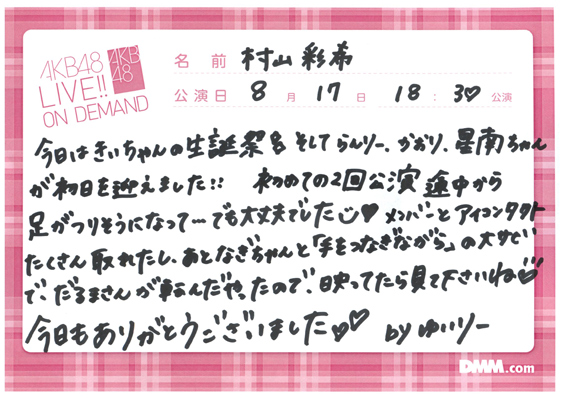 AKB48
LIVE!!
ON DEMAND
AKB
48
名前 村山彩希
公演日 8月17日 18:30公演
今日はきぃちゃんの生誕祭& そして らんりー、かおり、星南ちゃん
が初日を迎えました!! 初めての2回公演 途中から
足がつりそうになって…でも大丈夫でした♡ メンバーとアイコンタクト
たくさん取れたし、あとなぎちゃんと「手をつなぎながら」の大サビ
で、だるまさんが転んだや、たので、映ってたら見て下さいね♡
今日もありがとうございました♡♡ by ゆいりー
DMM.com